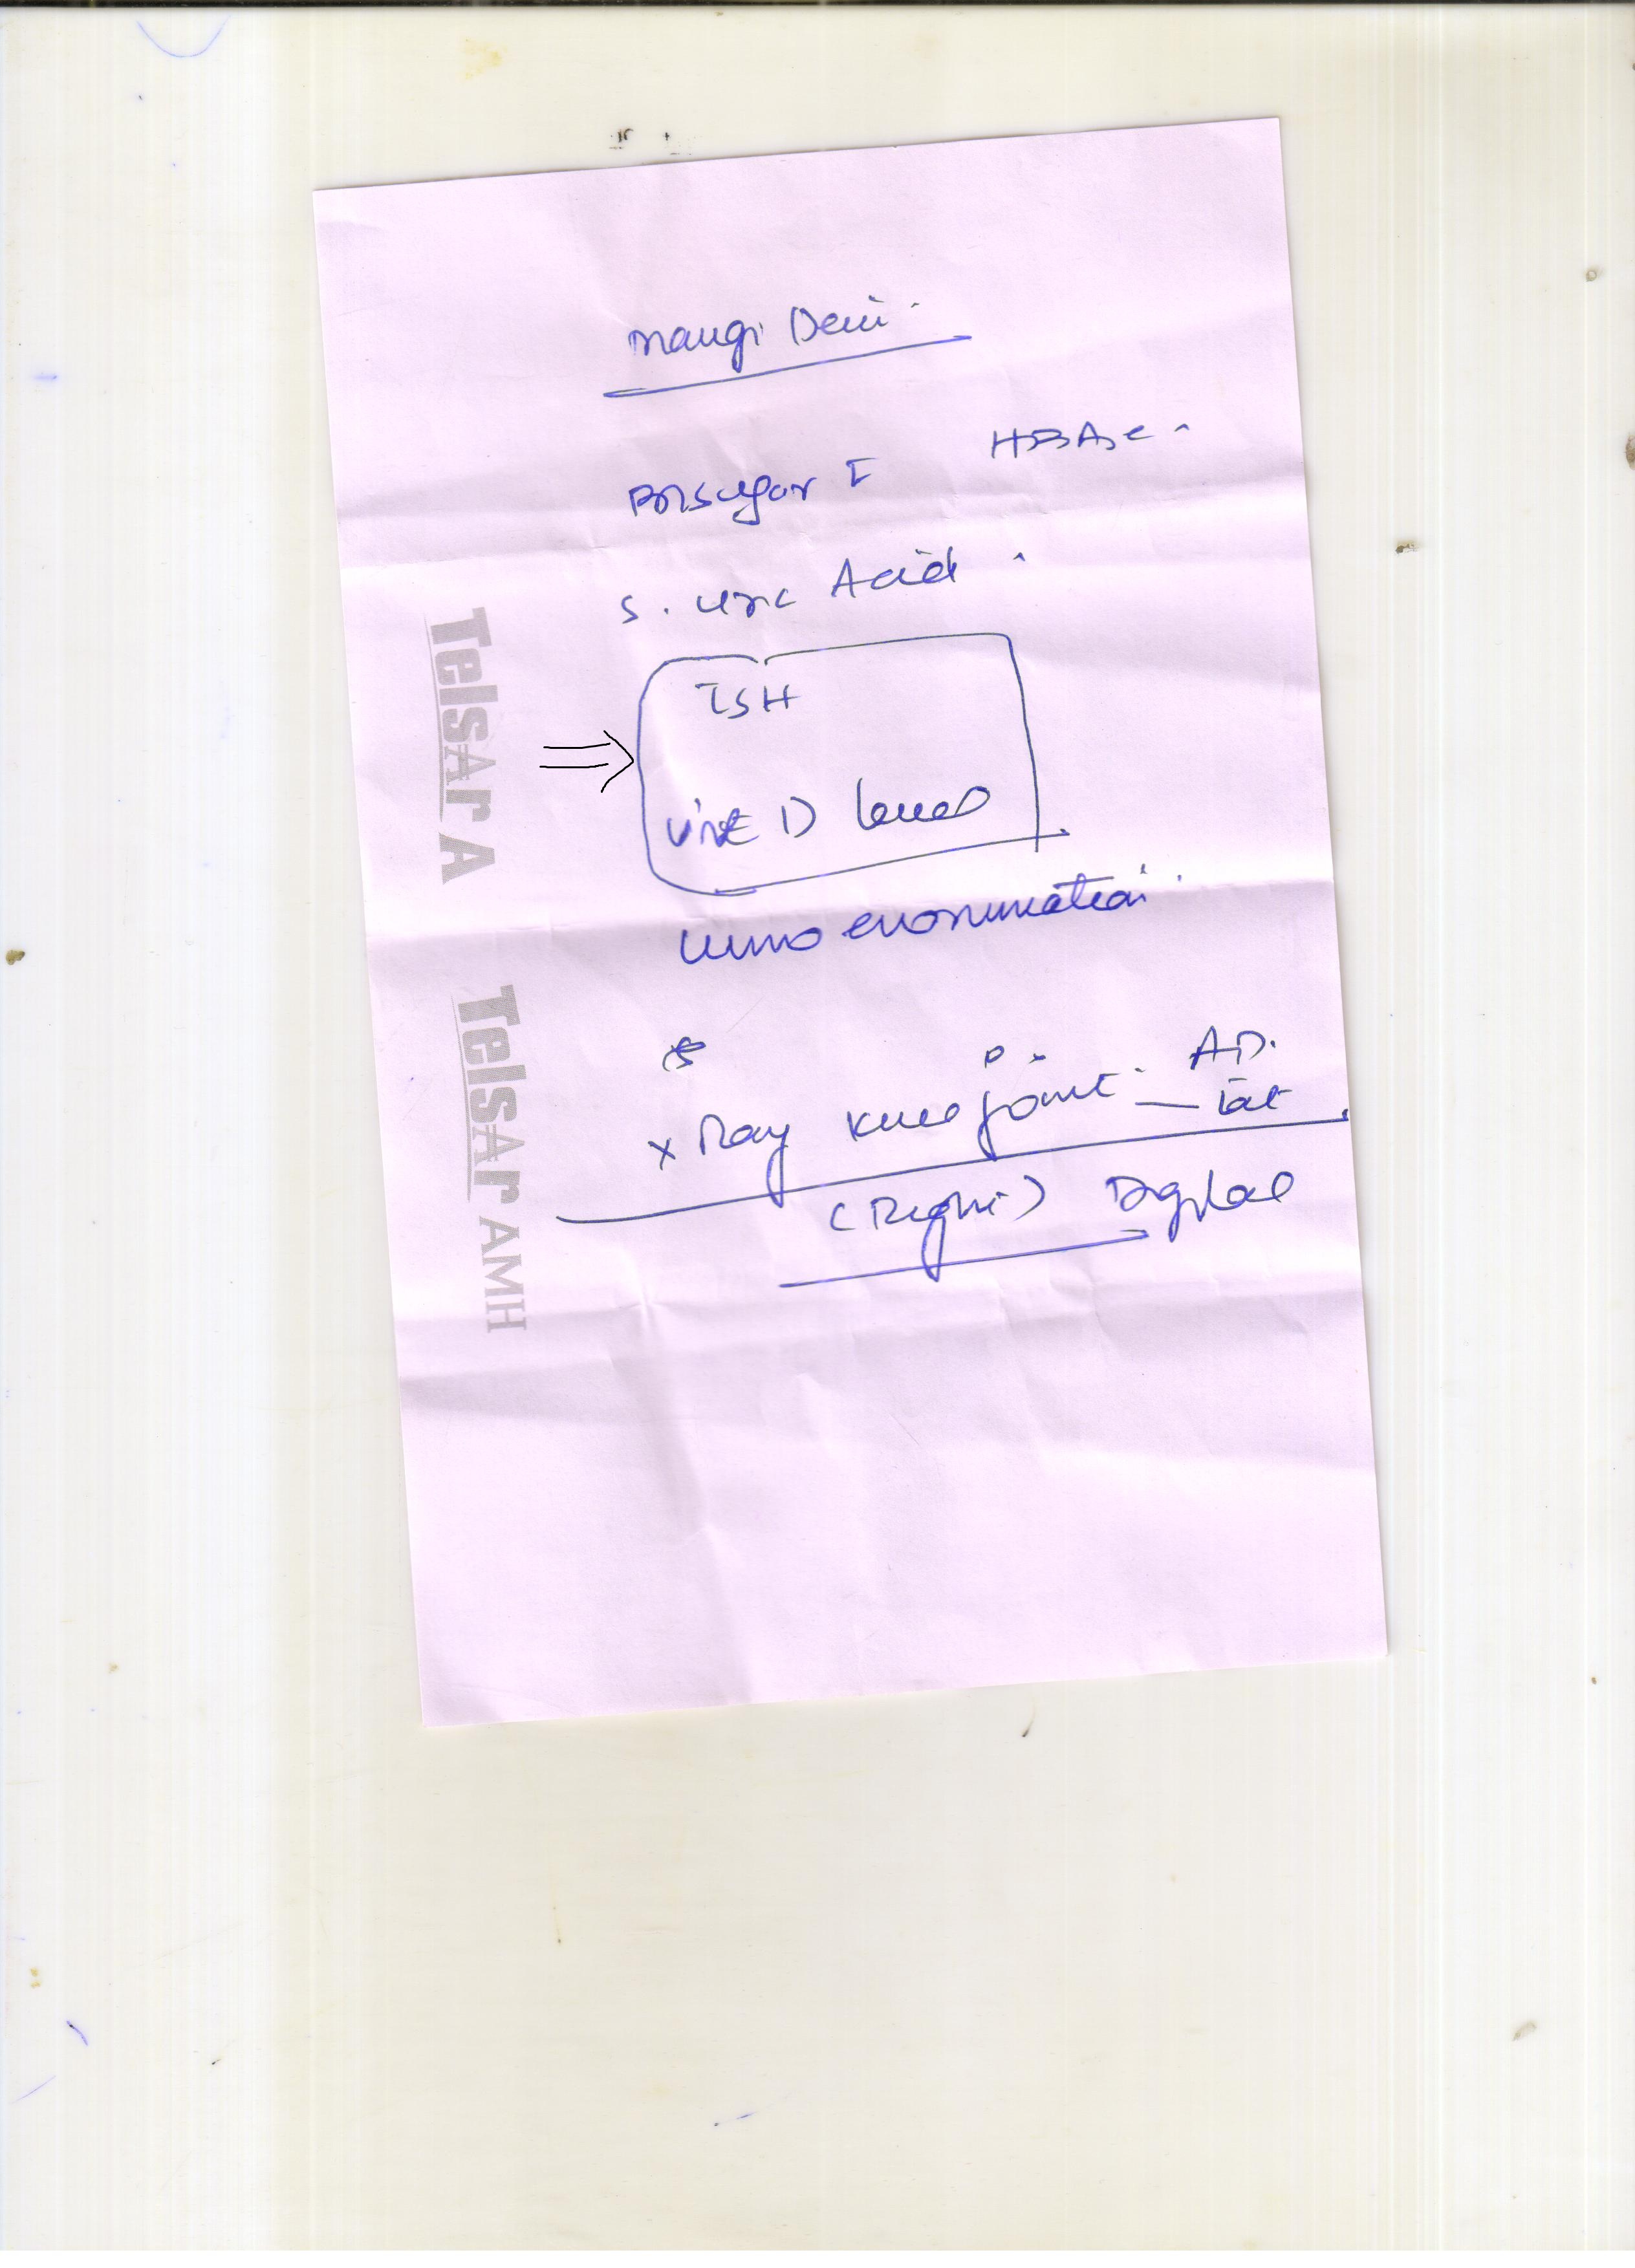 Mangi Devi
Bl sugar F HbA1c
S. Uric Acid
TSH
Vit D level
Urine examination
X Ray Knee joint - AP.
Lat
(Right) Digital
TelsAr A
TelsAr AMH